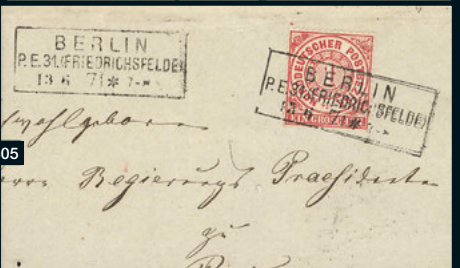 BERLIN
P.E.31.(FRIEDRICHSFELDE)
13 6 71 * 7-
NORDDEUTSCHER POST
EIN GROSCHEN
BERLIN
P.E.31.(FRIEDRICHSFELDE)
13 6 71 * 7-
05
Regierungs Praesidenten
zu